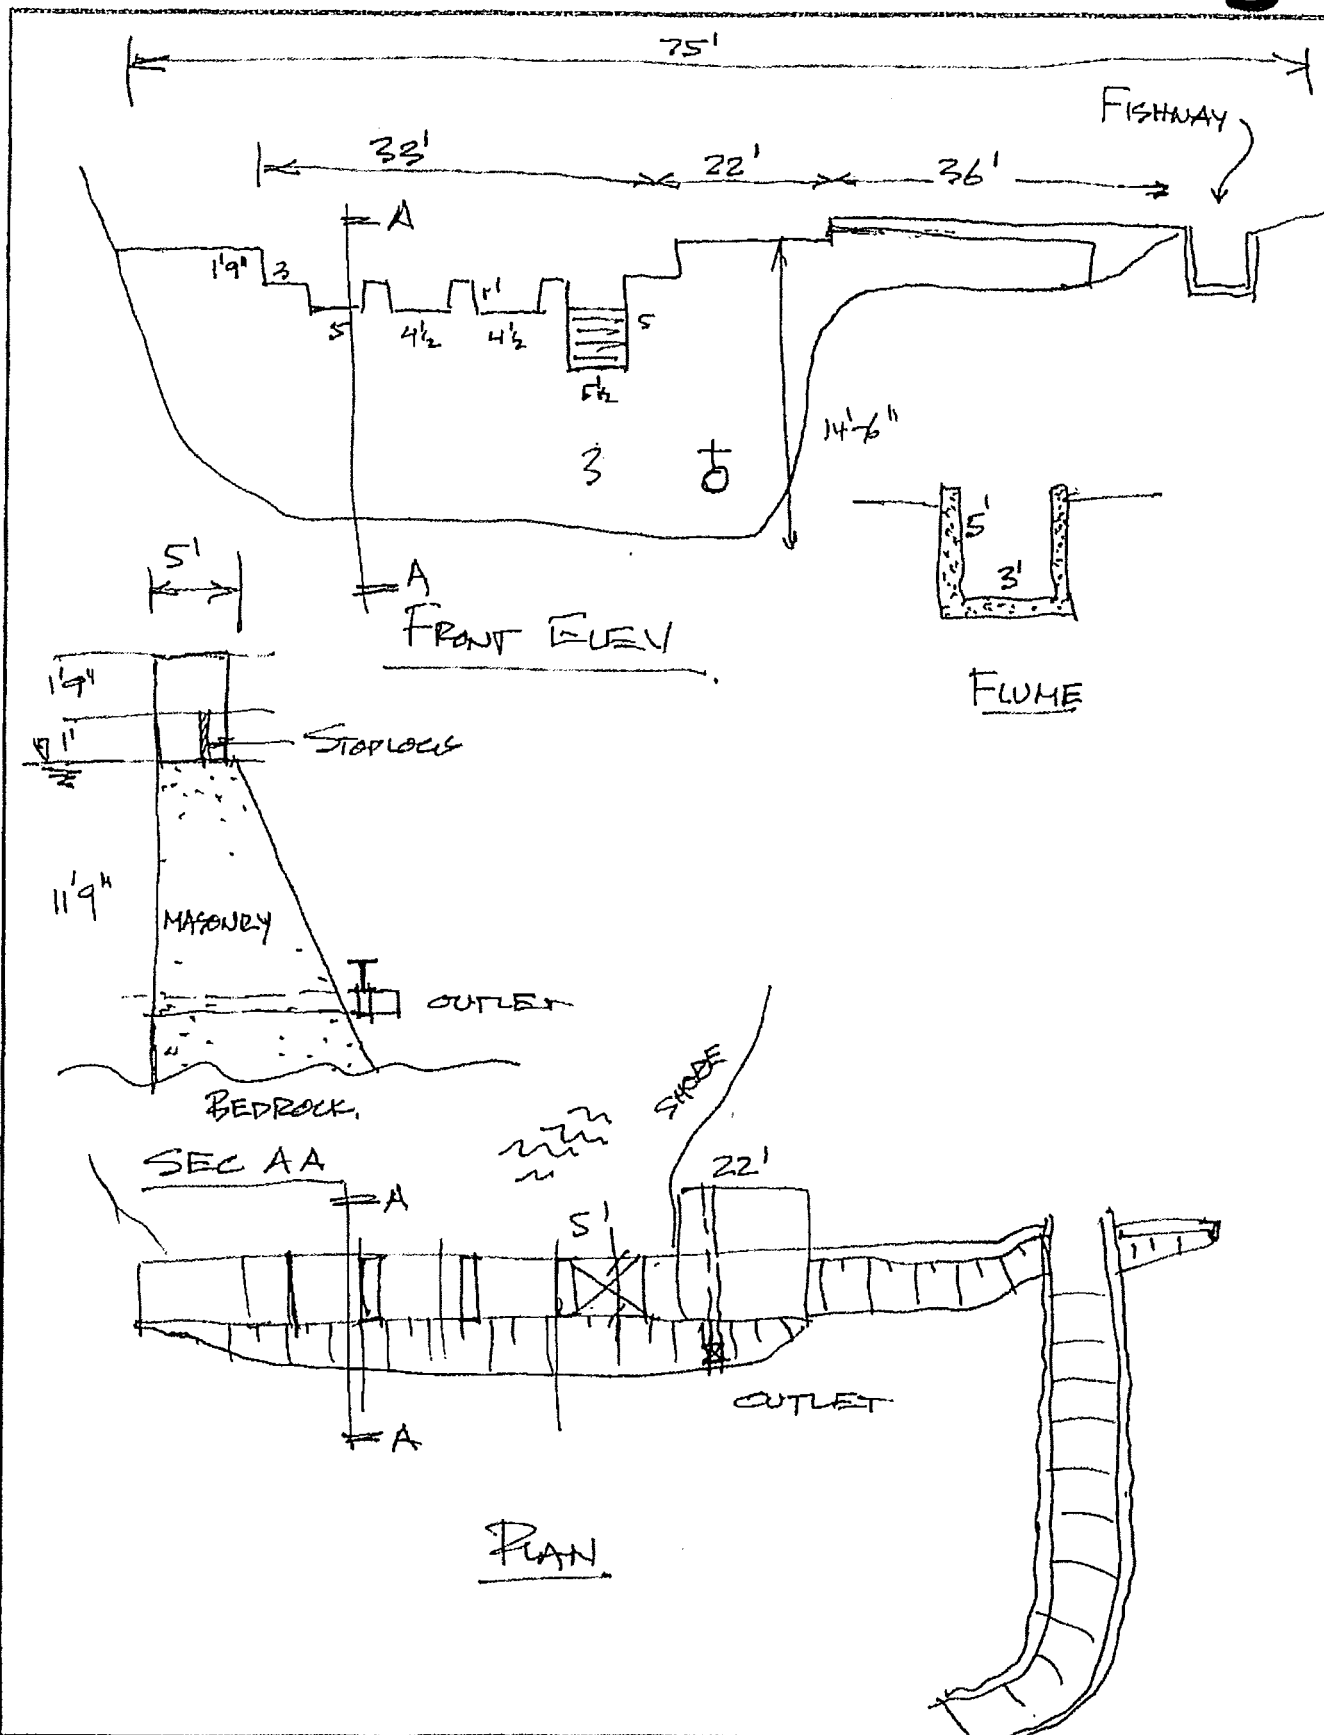 75'
FISHWAY
33'
22'
36'
A
1'9"
3
1'
5
4½
4½
5
5½
14'-6"
3
5'
A
FRONT ELEV.
5'
3'
FLUME
1'9"
1'
STOPLOGS
11'9"
MASONRY
OUTLET
BEDROCK.
SHORE
SEC AA
22'
A
5'
OUTLET
A
PLAN.